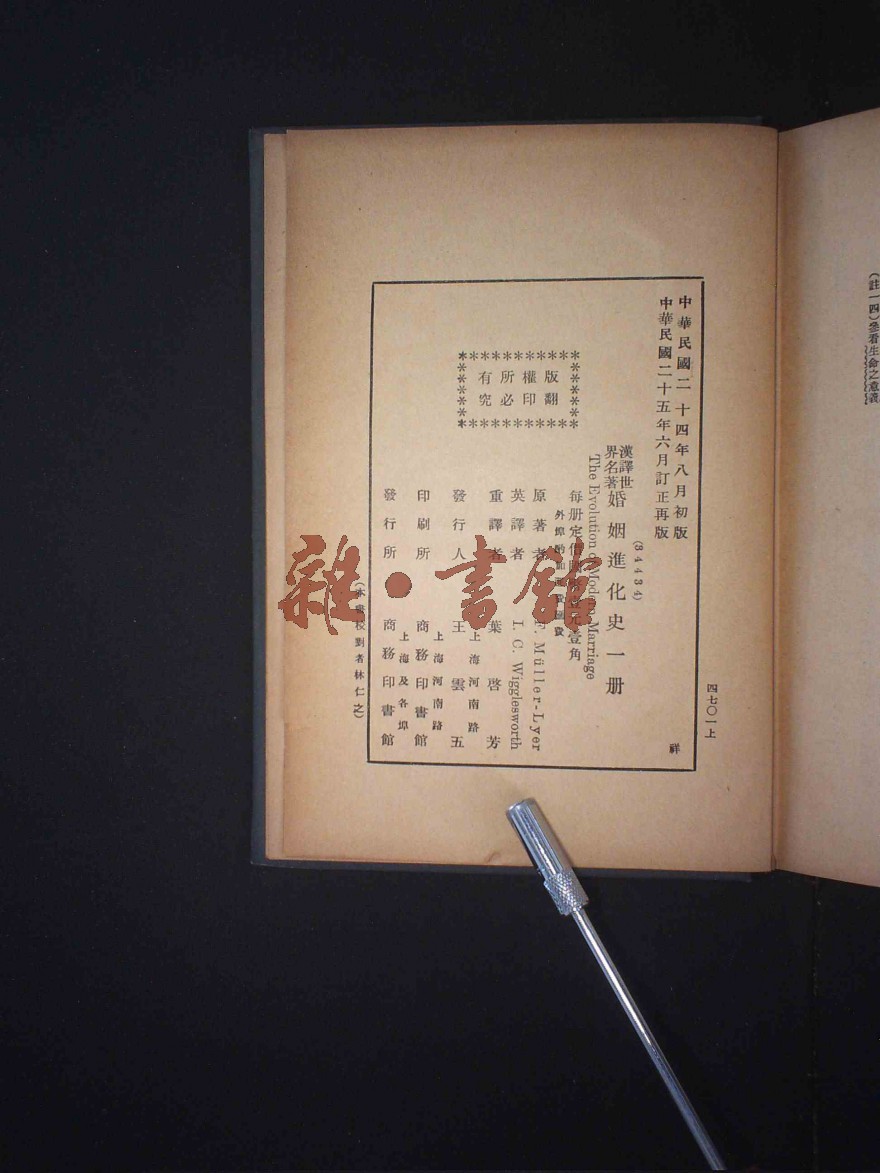 (註一四)參看生命之意義
四七〇一上
中華民國二十四年八月初版
中華民國二十五年六月訂正再版
祥
(34434)
漢譯世界名著
婚姻進化史一册
The Evolution of Modern Marriage
每册定價國幣壹元壹角
外埠酌加運費匯費
版權所有
翻印必究
原著者 F. Müller-Lyer
英譯者 I. C. Wigglesworth
重譯者 葉啓芳
發行人 王雲五
上海河南路
印刷所 商務印書館
上海河南路
發行所 商務印書館
上海及各埠
(本書校對者林仁之)
雜·書館